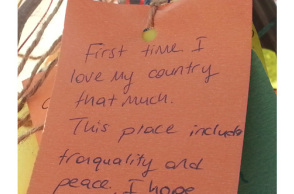 First time. I
love my country
that much.
This place include
tranquality and
peace. I hope